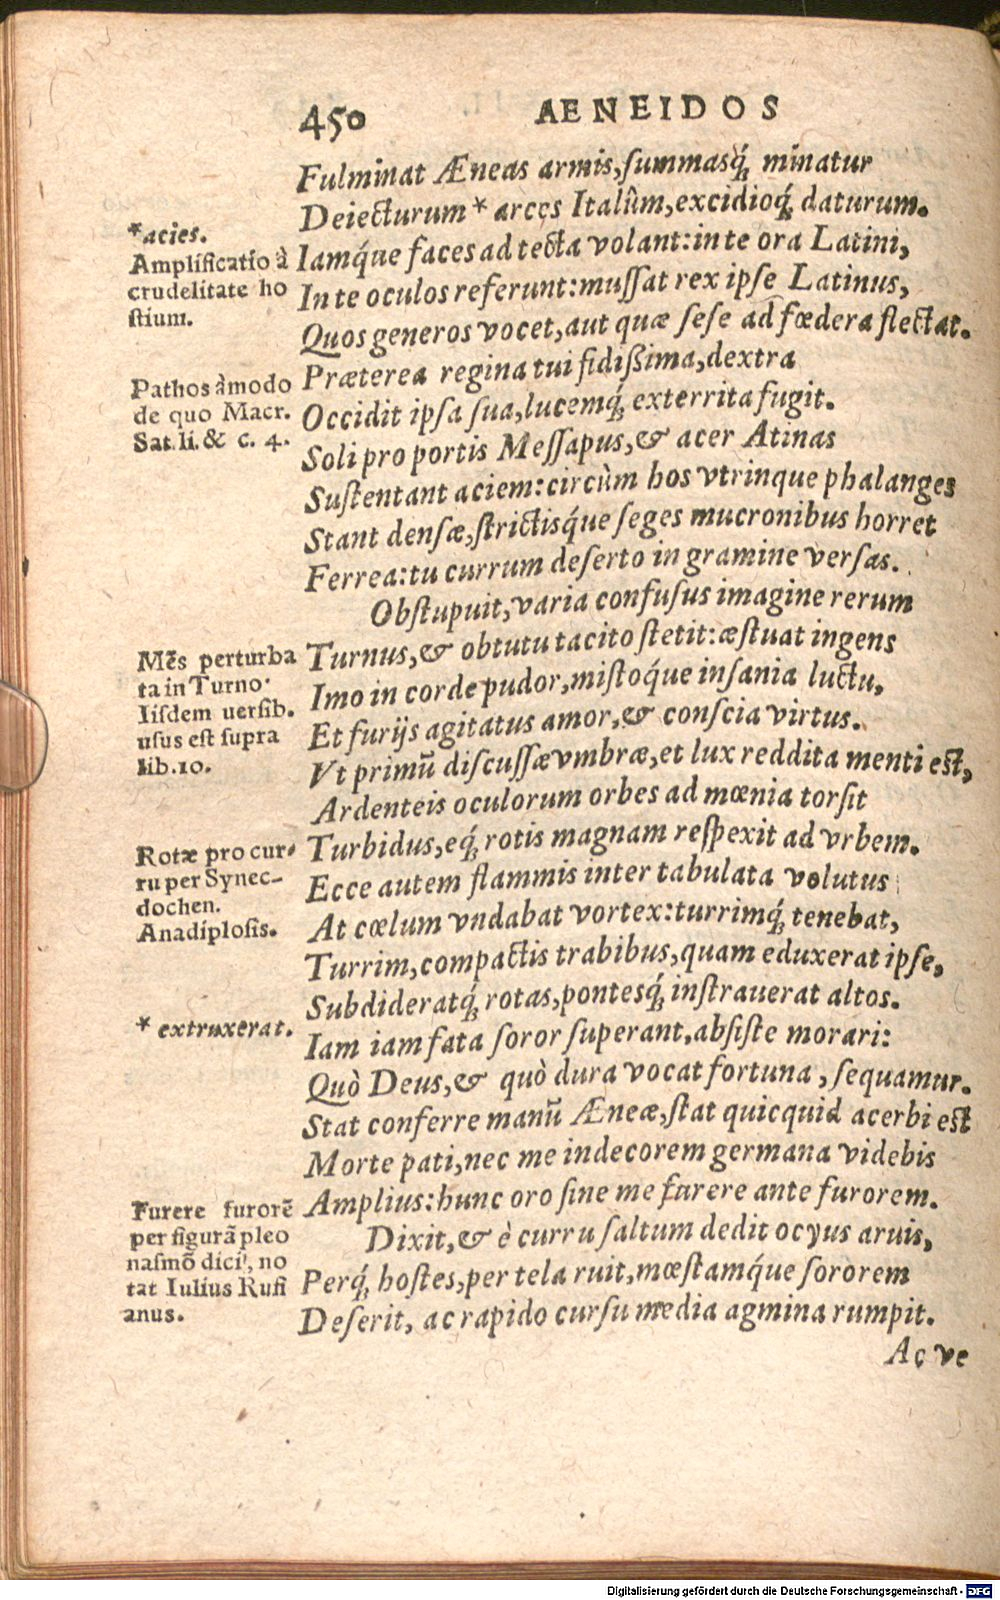 450 AENEIDOS
Fulminat Æneas armis, summasq́; minatur
Deiecturum * arces Italûm, excidioq́; daturum.
Iamq́ue faces ad tecta volant: in te ora Latini,
In te oculos referunt: mussat rex ipse Latinus,
Quos generos vocet, aut quæ sese ad fœdera flectat.
Præterea regina tui fidißima, dextra
Occidit ipsa sua, lucemq́; exterrita fugit.
Soli pro portis Messapus, & acer Atinas
Sustentant aciem: circùm hos vtrinque phalanges
Stant densæ, strictisq́ue seges mucronibus horret
Ferrea: tu currum deserto in gramine versas.
Obstupuit, varia confusus imagine rerum
Turnus, & obtutu tacito stetit: æstuat ingens
Imo in corde pudor, mistoq́ue insania luctu,
Et furijs agitatus amor, & conscia virtus.
Vt primū discussæ vmbræ, et lux reddita menti est,
Ardenteis oculorum orbes ad mœnia torsit
Turbidus, eq́; rotis magnam respexit ad vrbem.
Ecce autem flammis inter tabulata volutus
At cœlum vndabat vortex: turrimq́; tenebat,
Turrim, compactis trabibus, quam eduxerat ipse,
Subdideratq́; rotas, pontesq́; instrauerat altos.
Iam iam fata soror superant, absiste morari:
Quò Deus, & quò dura vocat fortuna, sequamur.
Stat conferre manū Æneæ, stat quicquid acerbi est
Morte pati, nec me indecorem germana videbis
Amplius: hunc oro sine me furere ante furorem.
Dixit, & è curru saltum dedit ocyus aruis,
Perq́; hostes, per tela ruit, mœstamq́ue sororem
Deserit, ac rapido cursu media agmina rumpit.
Ac ve
*acies.
Amplificatio à
crudelitate ho
stium.
Pathos à modo
de quo Macr.
Sat. li. & c. 4.
Mēs perturba
ta in Turno.
Iisdem uersib.
usus est supra
lib. 10.
Rotæ pro cur-
ru per Synec-
dochen.
Anadiplosis.
* extruxerat.
Furere furorē
per figurā pleo
nasmō dici, no
tat Iulius Rufi
anus.
Digitalisierung gefördert durch die Deutsche Forschungsgemeinschaft - DFG